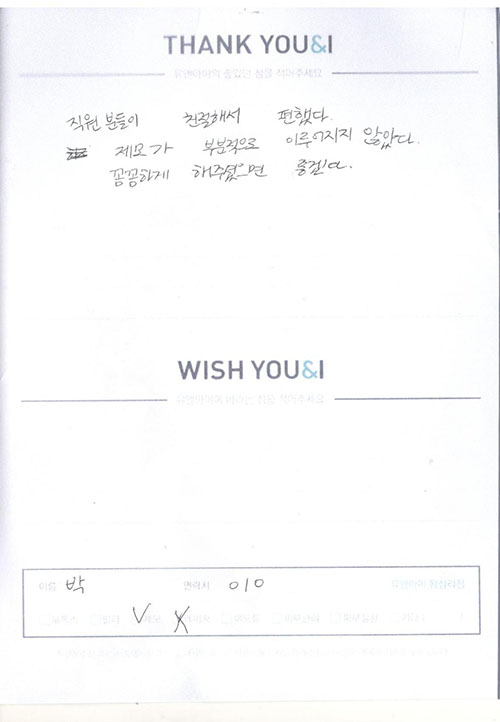 THANK YOU&I
유앤아이의 좋았던 점을 적어주세요
직원 분들이 친절해서 편했다.
제모가 부분적으로 이루어지지 않았다.
꼼꼼하게 해주셨으면 좋겠다.
WISH YOU&I
유앤아이에 바라는 점을 적어주세요
이름 박 연락처 010 유앤아이
보톡스 필러 제모 여드름 피부관리 기타 (